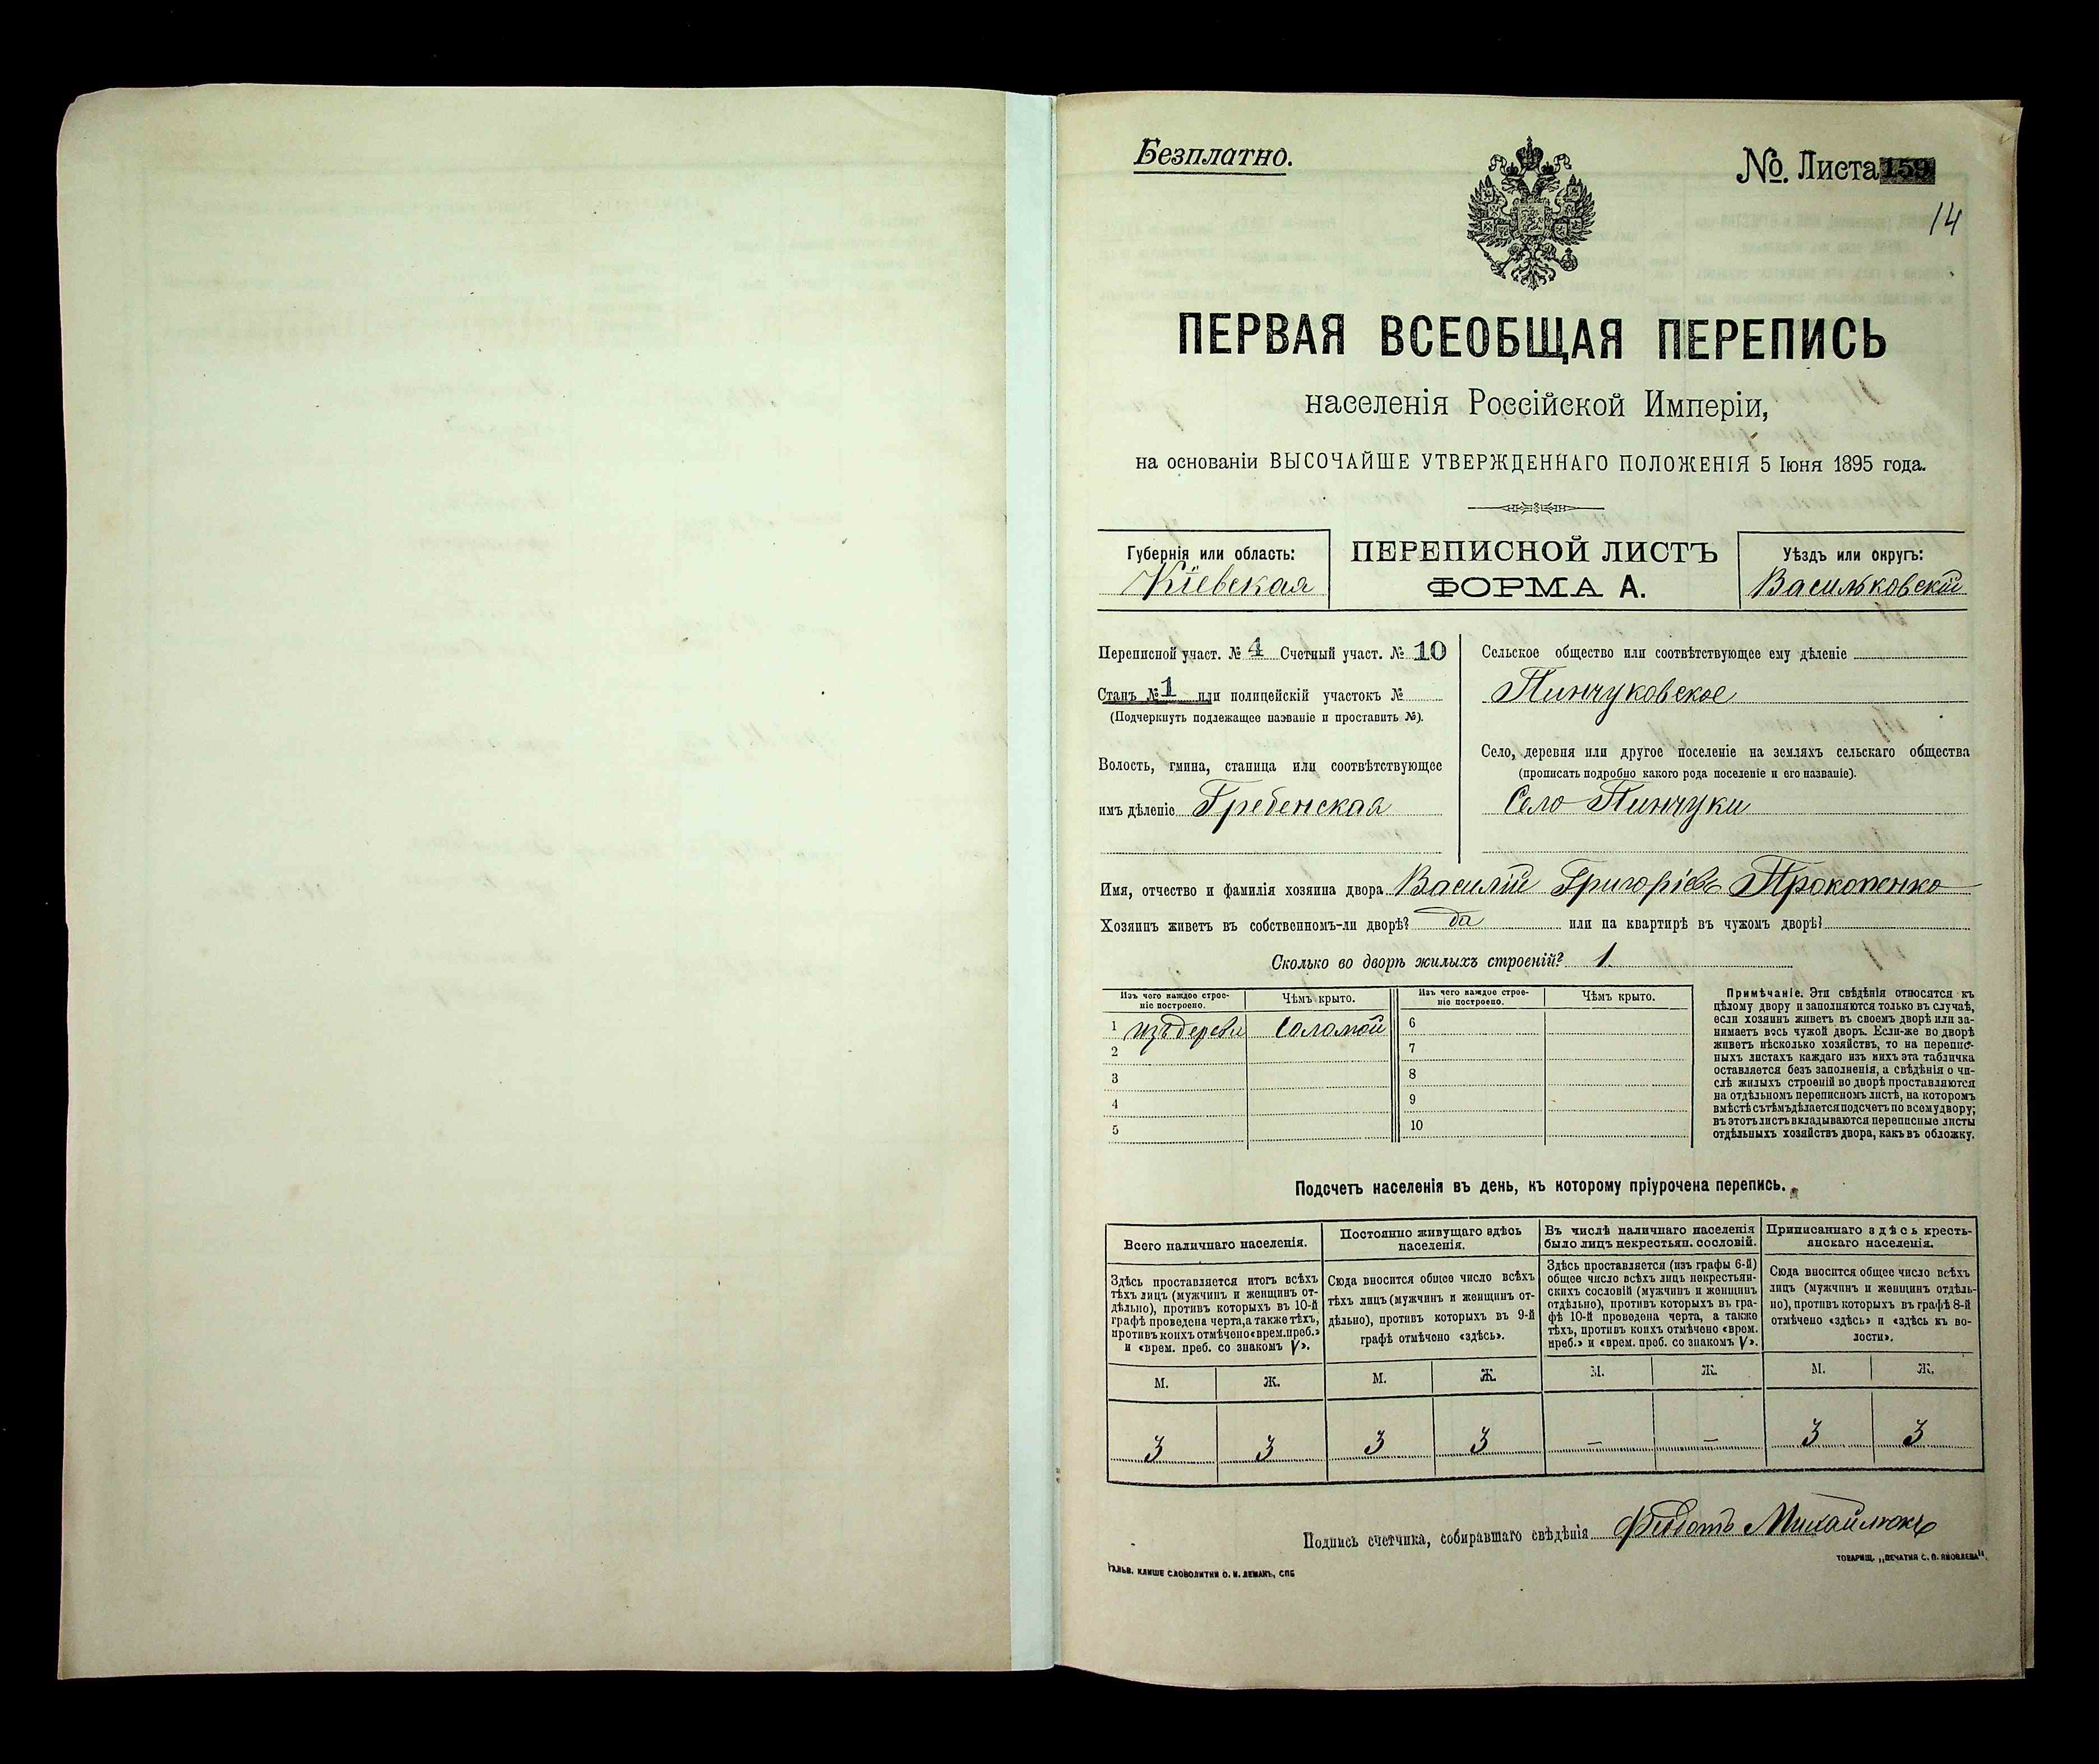 Безплатно.
№. Листа 159
14
ПЕРВАЯ ВСЕОБЩАЯ ПЕРЕПИСЬ
населенія Россійской Имперіи,
на основаніи ВЫСОЧАЙШЕ УТВЕРЖДЕННАГО ПОЛОЖЕНІЯ 5 Іюня 1895 года.
Губернія или область:
Кіевская
ПЕРЕПИСНОЙ ЛИСТЪ
ФОРМА А.
Уѣздъ или округъ:
Васильковскій
Переписной участ. № 4 Счетный участ. № 10
Станъ № 1 или полицейскій участокъ №
(Подчеркнуть подлежащее названіе и проставить №).
Волость, гмина, станица или соотвѣтствующее
имъ дѣленіе Гребенская
Сельское общество или соотвѣтствующее ему дѣленіе
Пинчуковское
Село, деревня или другое поселеніе на земляхъ сельскаго общества
(прописать подробно какого рода поселеніе и его названіе).
Село Пинчуки
Имя, отчество и фамилія хозяина двора Василій Григоріевъ Прокопенко
Хозяинъ живетъ въ собственномъ-ли дворѣ? да или на квартирѣ въ чужомъ дворѣ?
Сколько во дворѣ жилыхъ строеній? 1.
Изъ чего каждое строе-
ніе построено.
Чѣмъ крыто.
Изъ чего каждое строе-
ніе построено.
Чѣмъ крыто.
1 изъ дерева соломой 6
2 7
3 8
4 9
5 10
Примѣчаніе. Эти свѣдѣнія относятся къ
цѣлому двору и заполняются только въ случаѣ,
если хозяинъ живетъ въ своемъ дворѣ или за-
нимаетъ весь чужой дворъ. Если-же во дворѣ
живетъ нѣсколько хозяйствъ, то на перепис-
ныхъ листахъ каждаго изъ нихъ эта табличка
оставляется безъ заполненія, а свѣдѣнія о чи-
слѣ жилыхъ строеній во дворѣ проставляются
на отдѣльномъ переписномъ листѣ, на которомъ
вмѣстѣ съ тѣмъ дѣлается подсчетъ по всему двору;
въ этотъ листъ вкладываются переписные листы
отдѣльныхъ хозяйствъ двора, какъ въ обложку.
Подсчетъ населенія въ день, къ которому пріурочена перепись.
Всего наличнаго населенія.
Здѣсь проставляется итогъ всѣхъ
тѣхъ лицъ (мужчинъ и женщинъ от-
дѣльно), противъ которыхъ въ 10-й
графѣ проведена черта, а также тѣхъ,
противъ коихъ отмѣчено «врем. преб.»
и «врем. преб. со знакомъ V».
Постоянно живущаго здѣсь
населенія.
Сюда вносится общее число всѣхъ
тѣхъ лицъ (мужчинъ и женщинъ от-
дѣльно), противъ которыхъ въ 9-й
графѣ отмѣчено «здѣсь».
Въ числѣ наличнаго населенія
было лицъ некрестьян. сословій.
Здѣсь проставляется (изъ графы 6-й)
общее число всѣхъ лицъ некрестьян-
скихъ сословій (мужчинъ и женщинъ
отдѣльно), противъ которыхъ въ гра-
фѣ 10-й проведена черта, а также
тѣхъ, противъ коихъ отмѣчено «врем.
преб.» и «врем. преб. со знакомъ V».
Приписаннаго здѣсь кресть-
янскаго населенія.
Сюда вносится общее число всѣхъ
лицъ (мужчинъ и женщинъ отдѣль-
но), противъ которыхъ въ графѣ 8-й
отмѣчено «здѣсь» и «здѣсь къ во-
лости».
М. Ж. М. Ж. М. Ж. М. Ж.
3 3 3 3 — — 3 3
Подпись счетчика, собиравшаго свѣдѣнія Федотъ Михайлюкъ
ГАЛЬВ. КЛИШЕ СЛОВОЛИТНИ О. И. ЛЕМАНЪ, СПБ
ТОВАРИЩ. „ПЕЧАТНЯ С. П. ЯКОВЛЕВА".